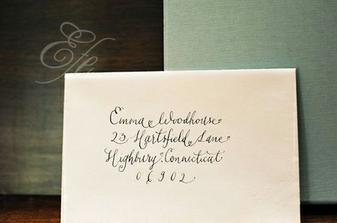 Efe
Emma Woodhouse
23 Hartsfield Lane
Highbury, Connecticut
06902